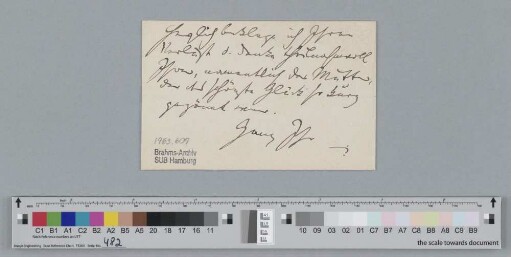 Herzlich beklage ich Ihren
Verlust u. denke theilnahmvoll
Ihrer, namentlich der Mutter,
der das schönste Glück so kurz
gegönnt war.
Ganz Ihr
1983.609
Brahms-Archiv
SUB Hamburg
C1 B1 A1 C2 B2 A2 B5 A5 20 18 17 16 11
10 09 03 02 01 C7 B7 A7 C8 B8 A8 C9 B9
482
the scale towards document